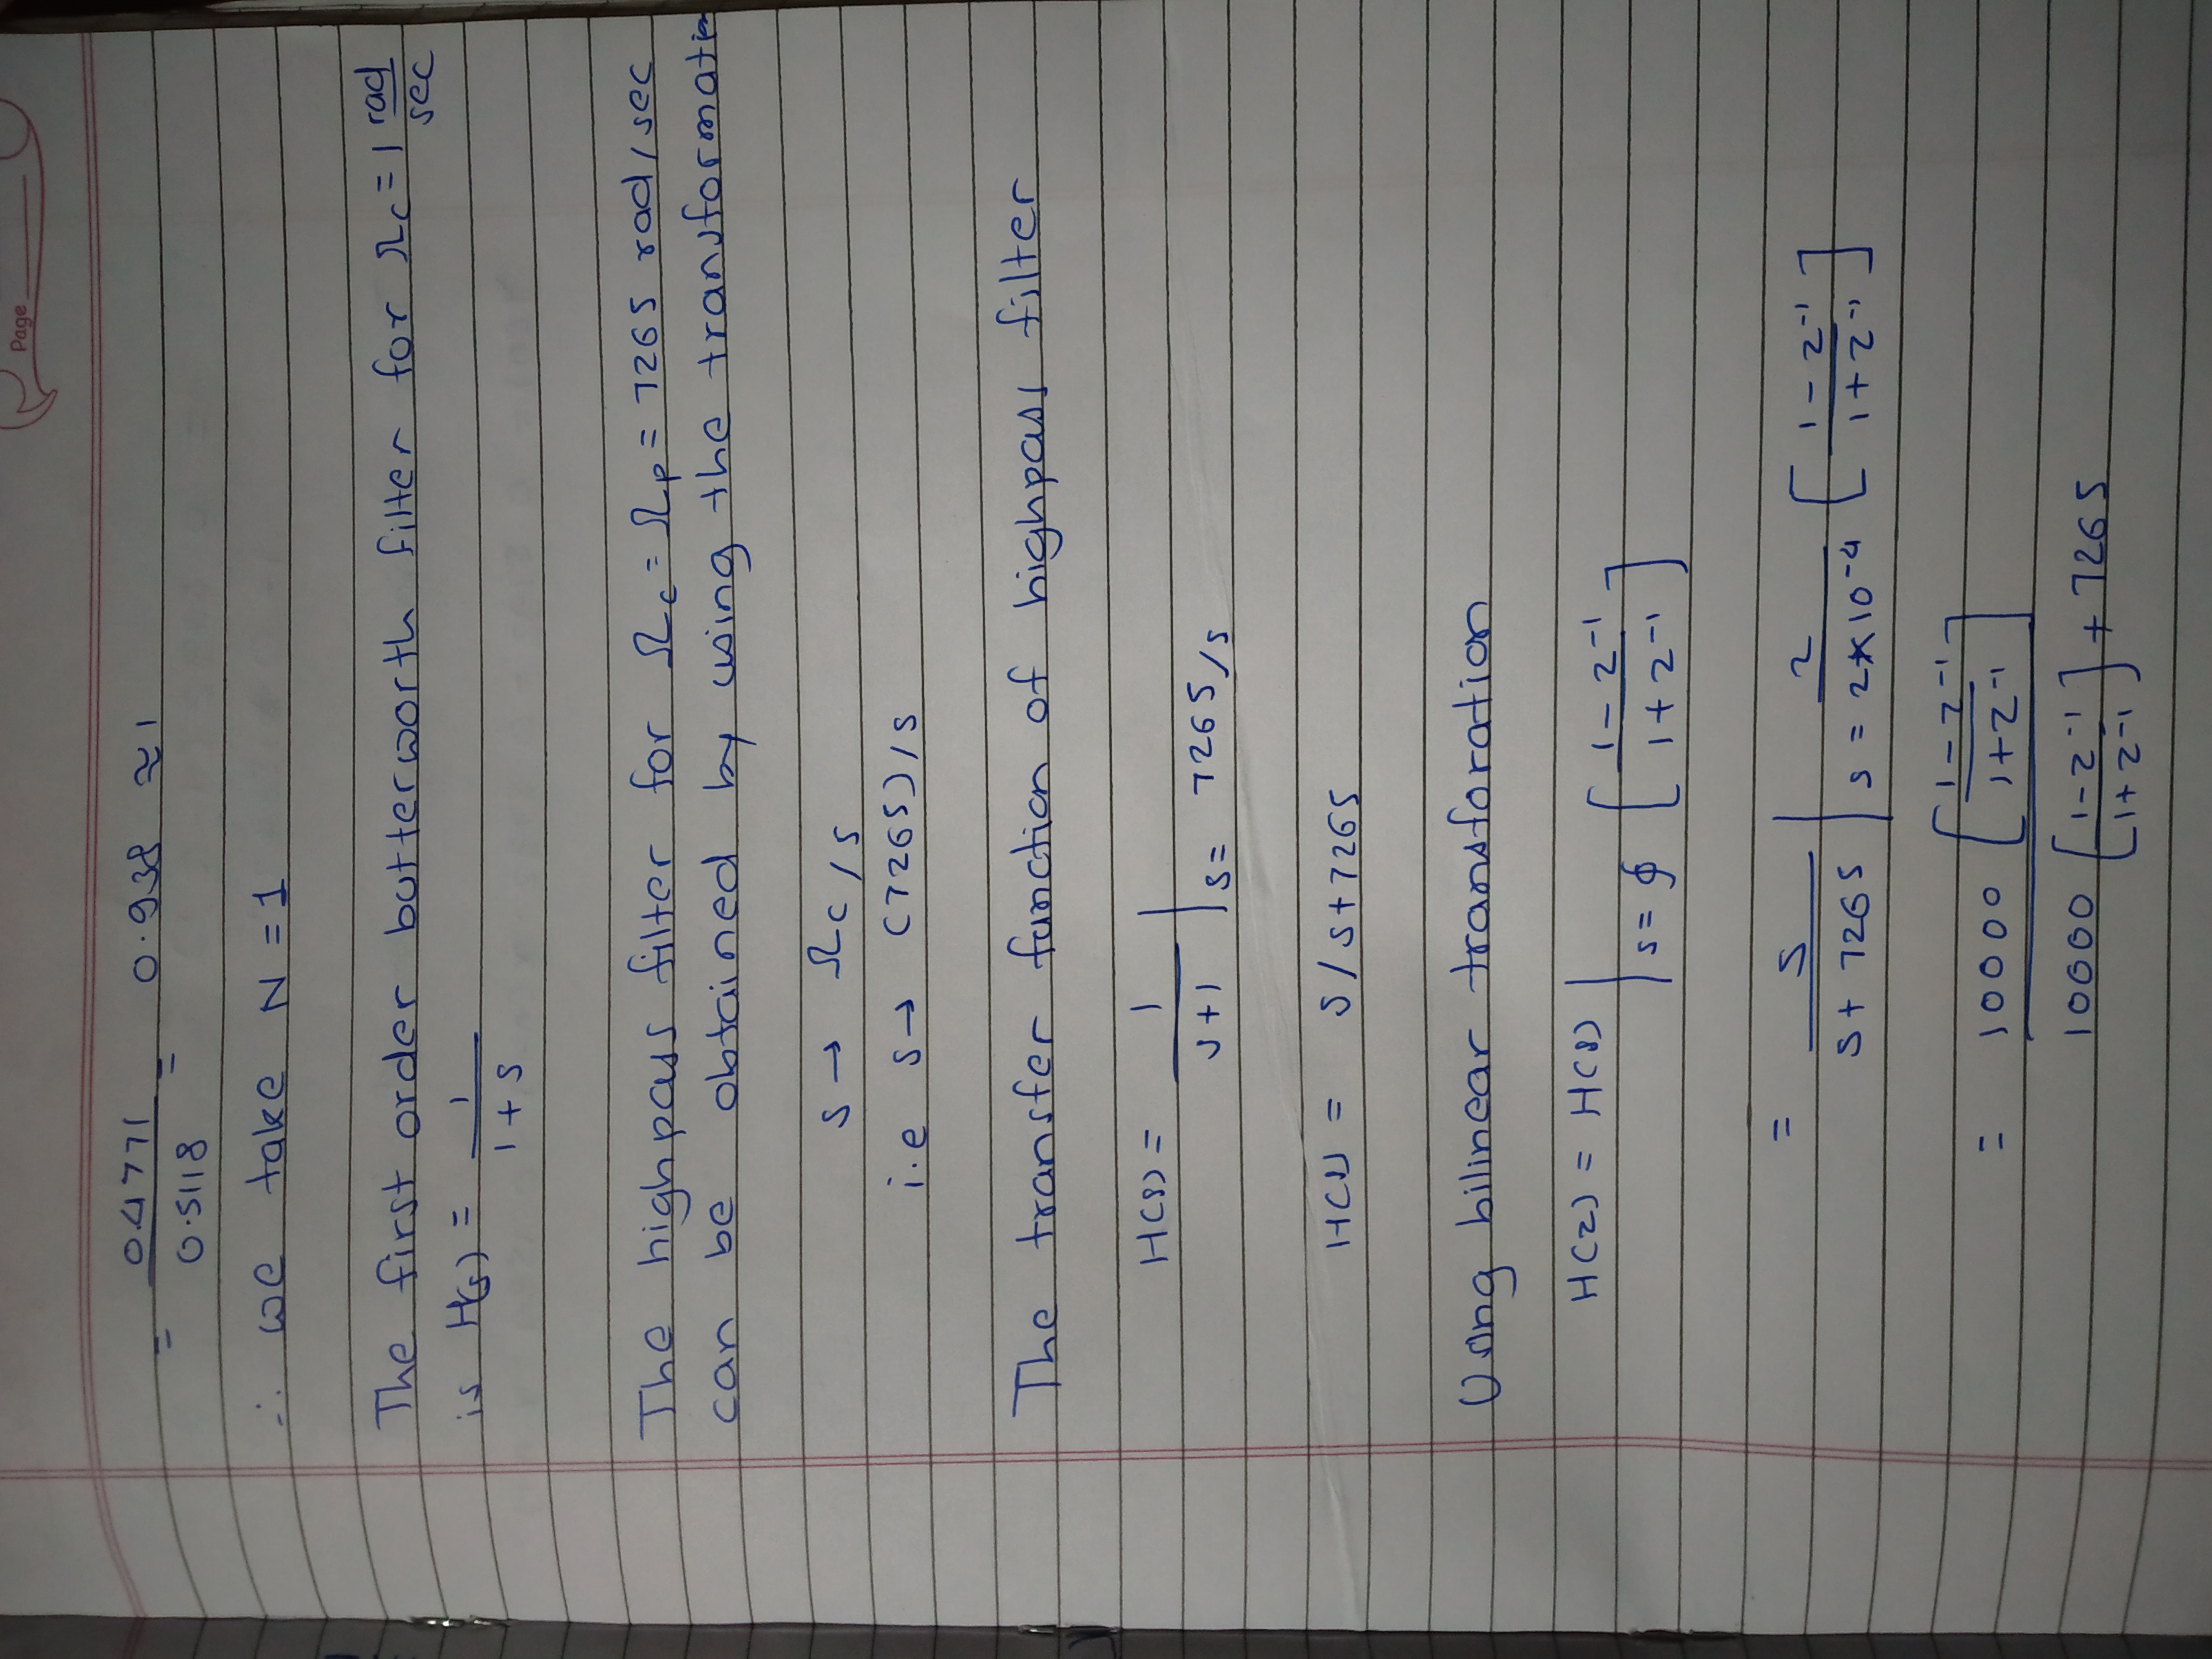 Page
= 0.4771 / 0.5118 = 0.938 ≈ 1
∴ we take N = 1
The first order butterworth filter for Ωc = 1 rad/sec
is H(s) = 1 / 1+s
The highpass filter for Ωc = Ωp = 7265 rad/sec
can be obtained by using the transformation
s → Ωc/s
i.e s → (7265)/s
The transfer function of highpass filter
H(s) = 1 / s+1 | s = 7265/s
H(s) = s/s+7265
Using bilinear transforation
H(z) = H(s) | s = [1-z⁻¹ / 1+z⁻¹]
= s / s+7265 | s = 2 / 2×10⁻⁴ [1-z⁻¹ / 1+z⁻¹]
= 10000 [1-z⁻¹ / 1+z⁻¹]
10000 [1-z⁻¹ / 1+z⁻¹] + 7265